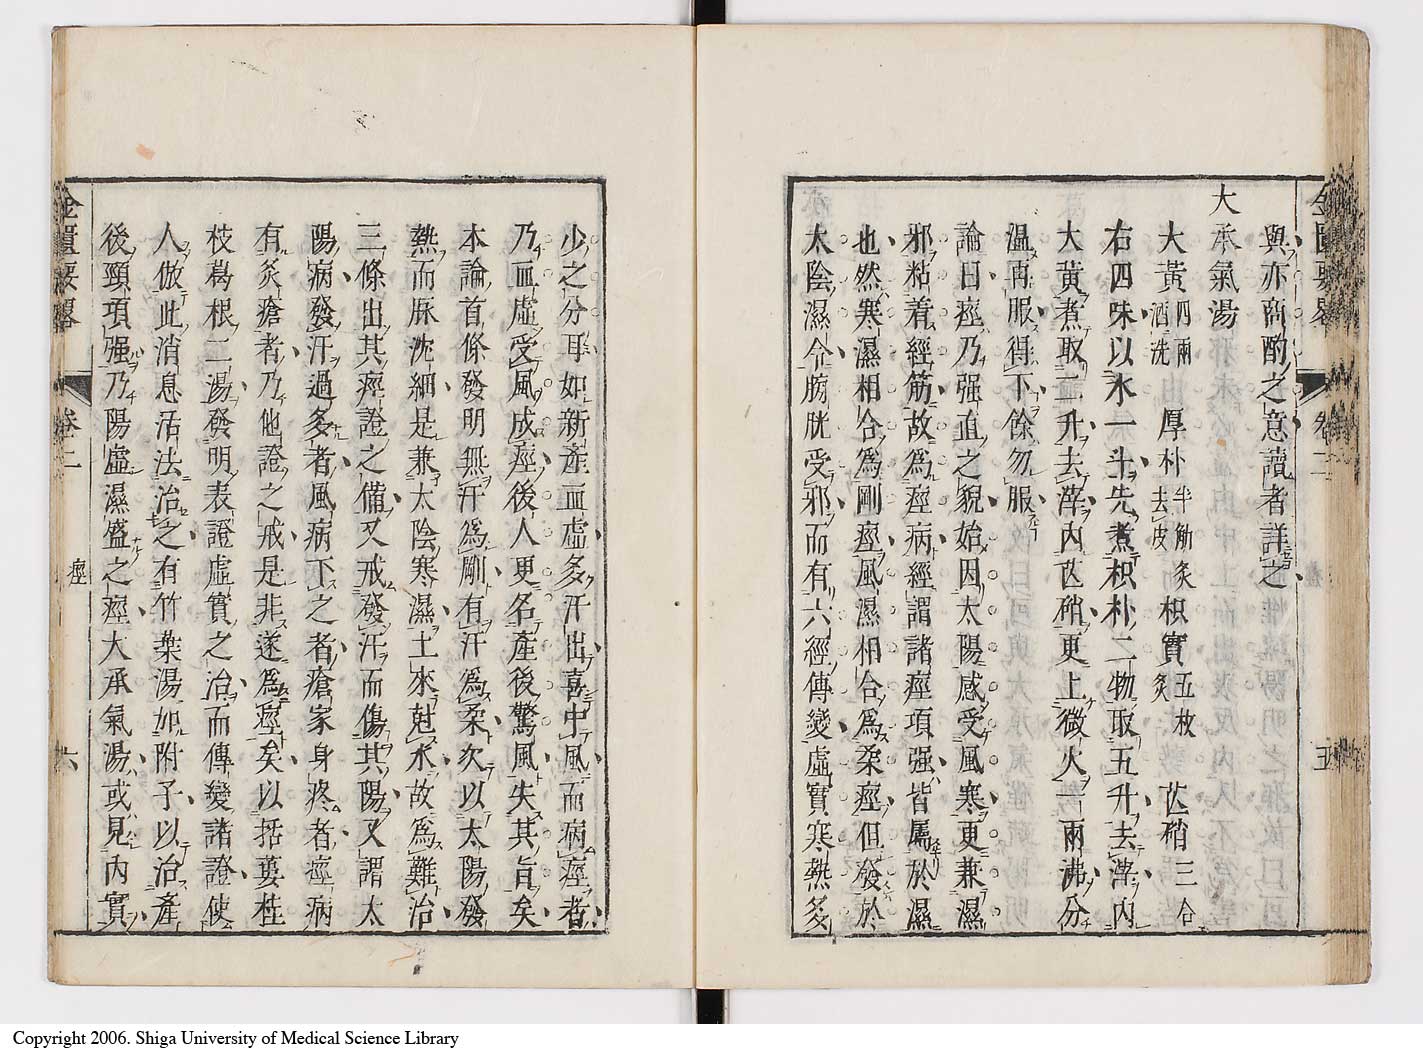 與亦商酌之意讀者詳之
大承氣湯
大黃四兩酒洗 厚朴半觔炙去皮 枳實五枚炙 芒硝三合
右四味以水一斗先煮枳朴二物取五升去滓內
大黃煮取二升去滓內芒硝更上微火一兩沸分
溫再服得下餘勿服
論曰痙乃强直之貌始因太陽感受風寒更兼濕
邪粘着經筋故為痙病經謂諸痙項强皆屬於濕
也然寒濕相合為剛痙風濕相合為柔痙但發於
太陰濕令膀胱受邪而有六經傳變虛實寒熱多
金匱要畧 卷二 痙 六
少之分耳如新產血虛多汗出喜中風而病痙者
乃血虛受風成痙後人更名產後驚風失其旨矣
本論首條發明無汗為剛有汗為柔次以太陽發
熱而脉沈細是兼太陰寒濕土來尅水故為難治
三條出其痙證之備又戒發汗而傷其陽又謂太
陽病發汗過多者風病下之者瘡家身疼者痙病
有灸瘡者乃他證之戒是非遂為痙矣以括蔞桂
枝葛根二湯發明表證虛實之治而傳變諸證使
人倣此消息活法治之有竹葉湯如附子以治產
後頸項强乃陽虛濕盛之痙大承氣湯或見內實
Copyright 2006. Shiga University of Medical Science Library